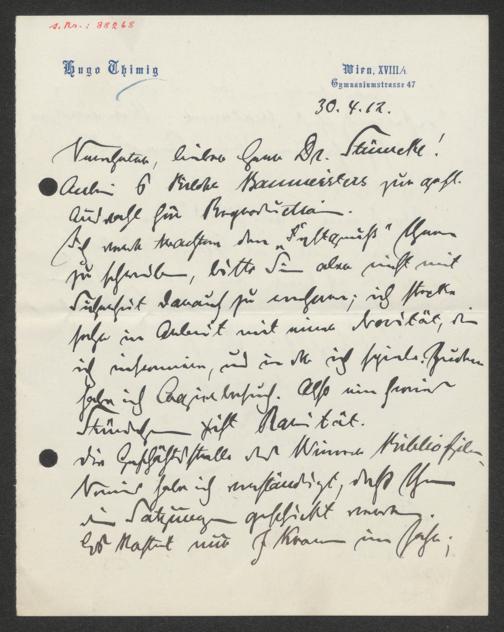 A.N.: 38268
Hugo Thimig
Wien, XVIII/1
Gymnasiumstrasse 47
30.4.12.
Verehrter, lieber Herr Dr. Stümcke!
Anbei 6 Bilder Baumeisters zur gefl.
Auswahl für Reproduction.
Ich werde trachten den „ " Ihnen
zu schreiben, bitte Sie aber nicht mit
Sicherheit darauf zu rechnen; ich stecke
sehr in Arbeit mit einer Novität, die
ich inszeniere, und in der ich spiele. Zudem
habe ich Logierbesuch. Also ein freies
Stündchen ist Rarität.
Die Geschäftsstelle des Wiener Bibliofilen-
Vereins habe ich verständigt, daß Ihnen
die Satzungen geschickt werden.
Es kostet nur Kronen im Jahr;